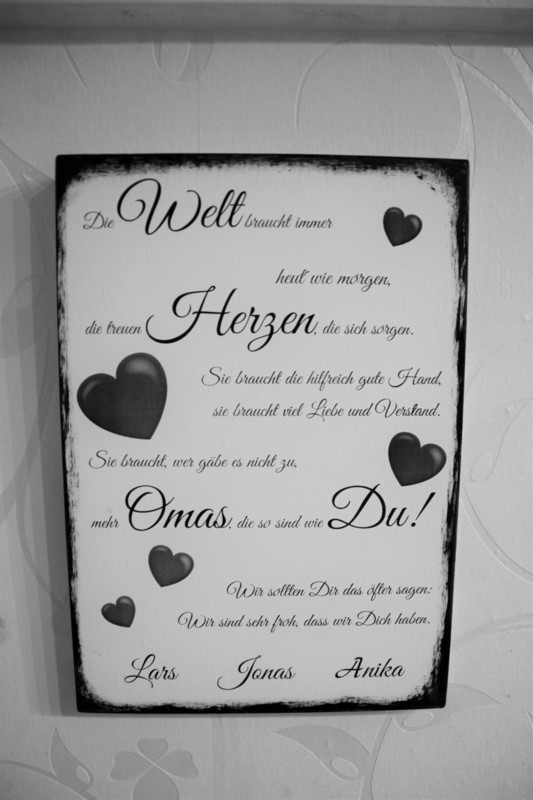 Die Welt braucht immer
heut' wie morgen,
die treuen Herzen, die sich sorgen.
Sie braucht die hilfreich gute Hand,
sie braucht viel Liebe und Verstand.
Sie braucht, wer gäbe es nicht zu,
mehr Omas, die so sind wie Du!
Wir sollten Dir das öfter sagen:
Wir sind sehr froh, dass wir Dich haben.
Lars Jonas Anika